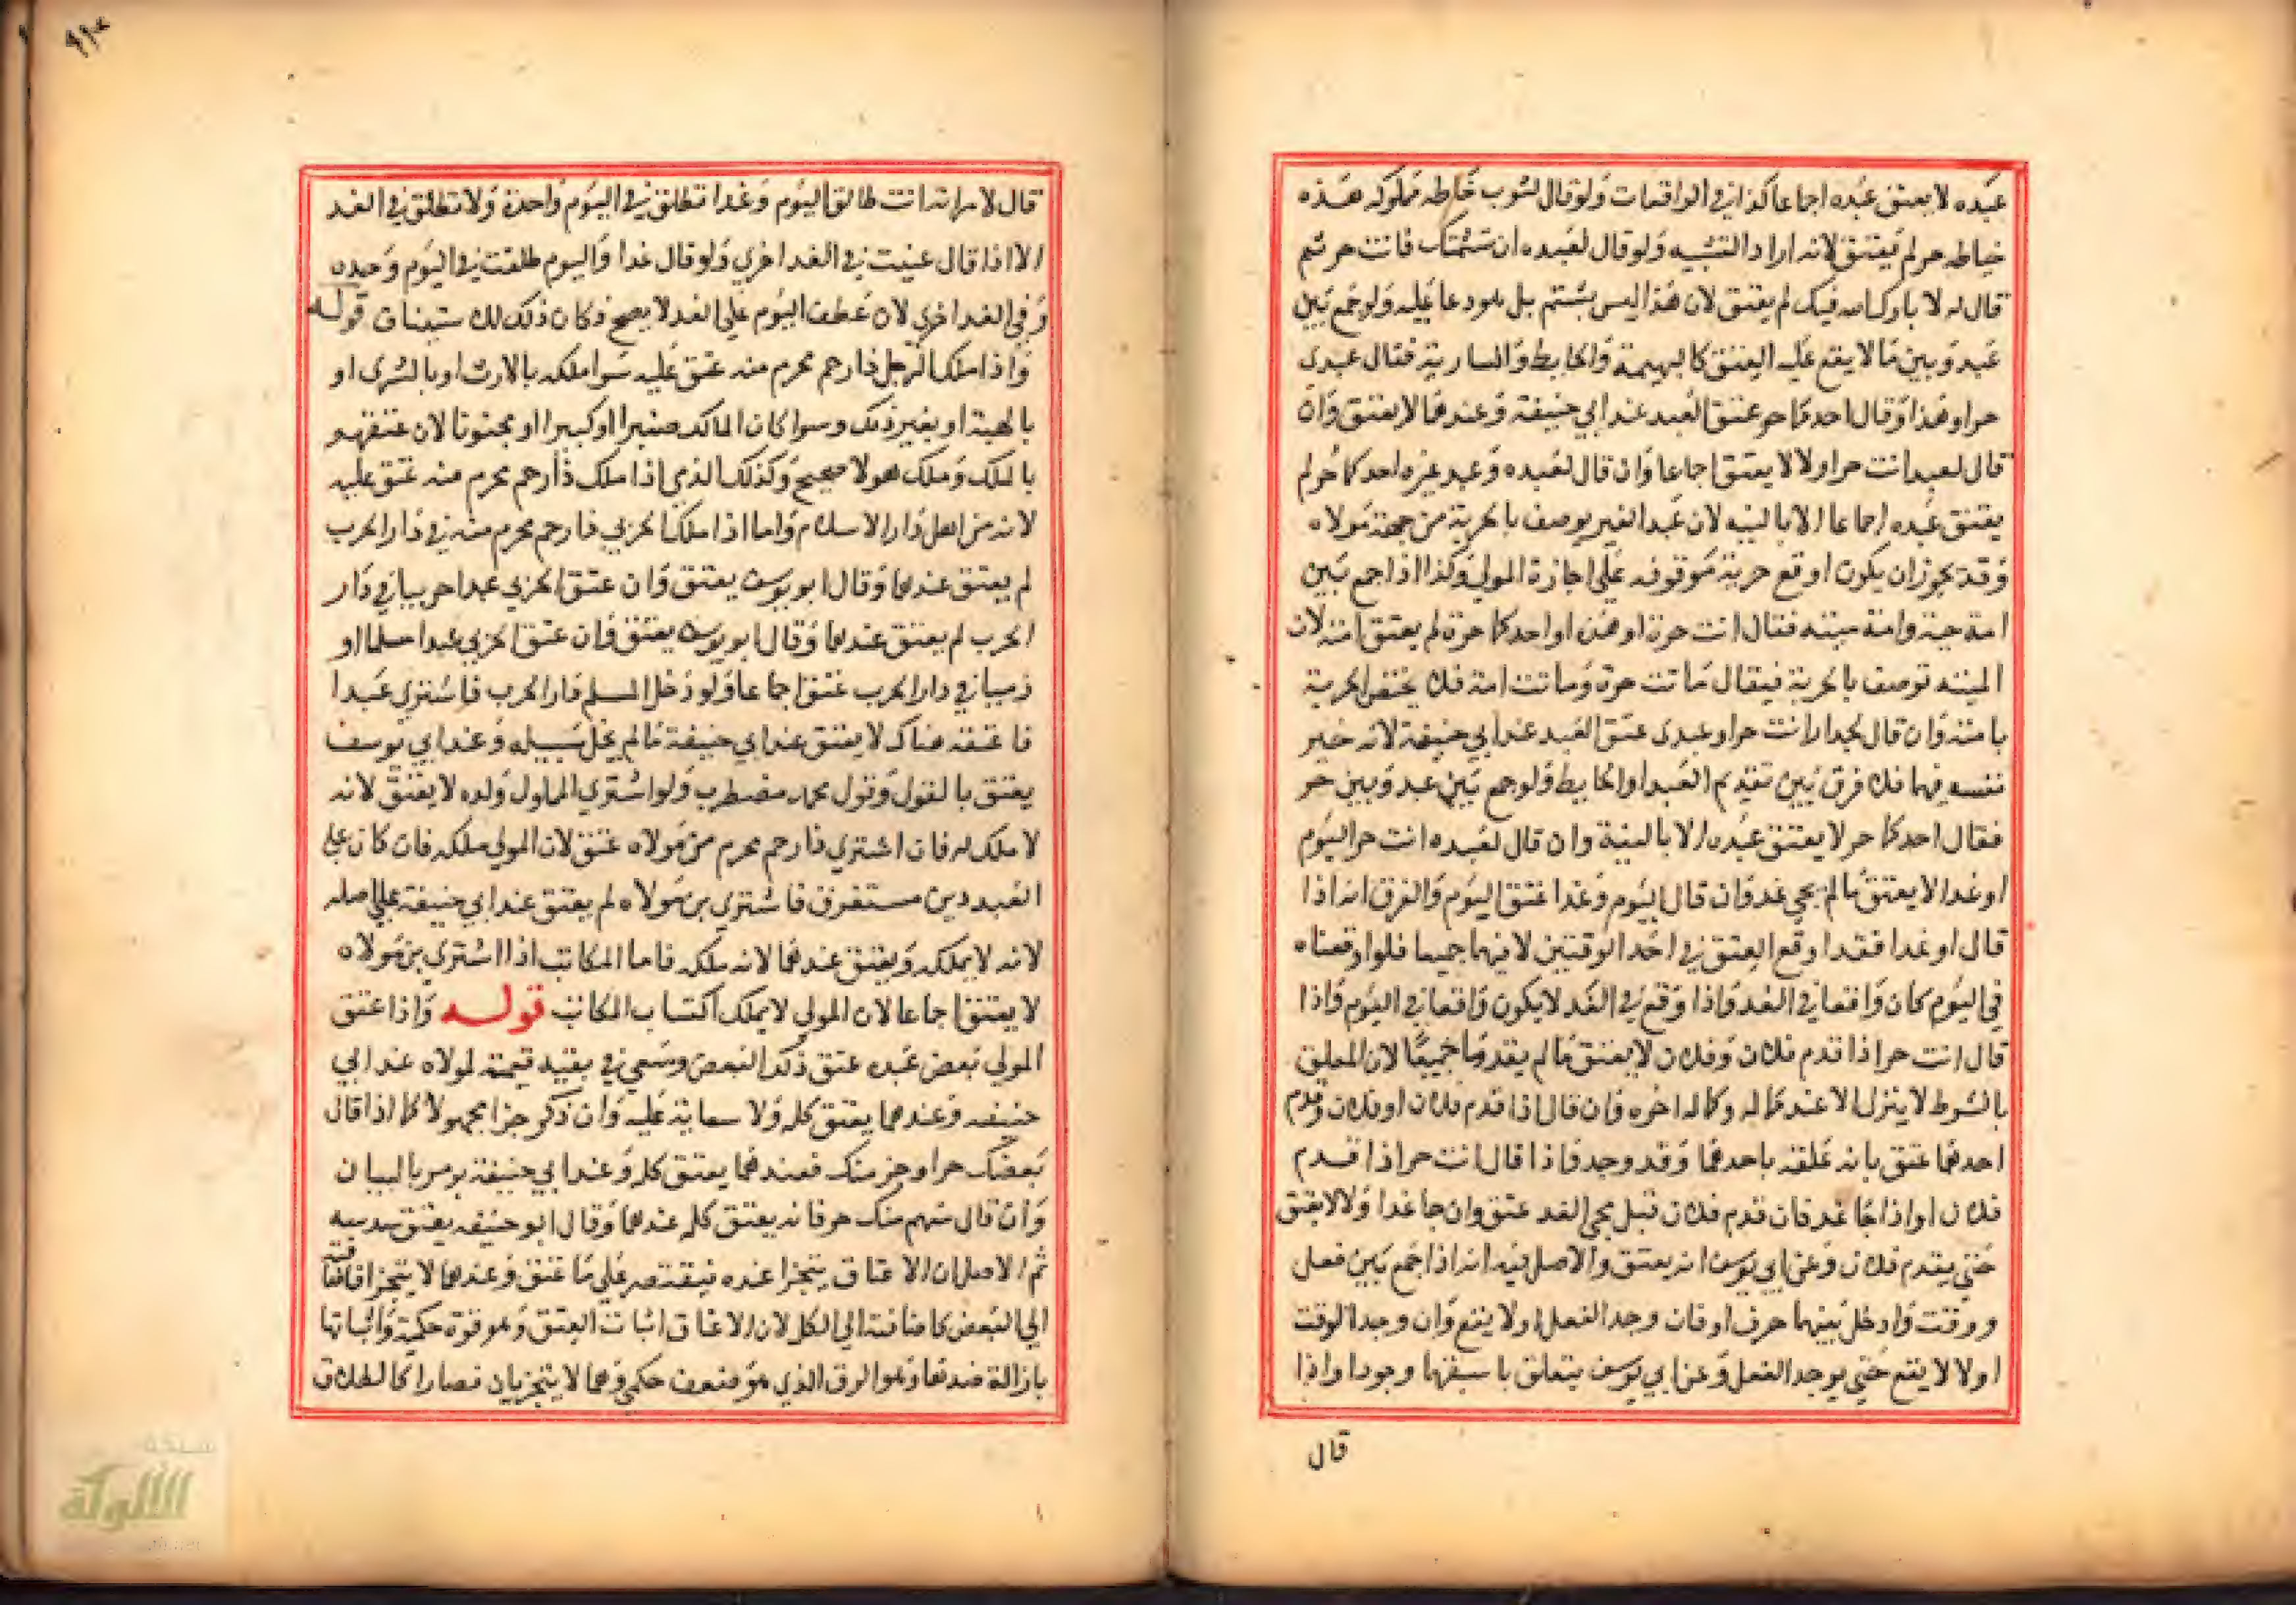 عبده لا يعتق عبده اجماعا كذا في الواقعات ولو قال لثوب خاطه مملوكه هذه
خياطه حر لم يعتق لانه اراد التشبيه ولو قال لعبده ان شتمتك فانت حر ثم
قال له لا بارك الله فيك لم يعتق لان هذا ليس بشتم بل هو دعا عليه ولو جمع بين
عبد وبين ما لا يقع عليه العتق كالبهيمة والحايط والسارية فقال عبدي
حر او هذا او قال احدهما حر عتق العبد عند ابي حنيفة وعندهما لا يعتق وان
قال لعبد انت حر او لا لا يعتق اجماعا وان قال لعبده وعبد غيره احدكما حر لم
يعتق عبده اجماعا الا بالنيه لان عبد الغير يوصف بالحرية من جهة مولاه
وقد يجوز ان يكون اوقع حرية موقوفه على اجازة المولي وكذا اذا جمع بين
امة حية وامة ميته فقال انت حرة او هذه او احدكما حرة لم يعتق امته لان
الميته توصف بالحرية فيقال ماتت حرة وماتت امة فلا يختص الحرية
بامته وان قال لجدار انت حر او عبدي عتق العبد عند ابي حنيفة لانه خير
نفسه فيها فلا فرق بين تقديم العبد او الحايط ولو جمع بين عبد وبين حر
فقال احدكما حر لا يعتق عبده الا بالنية وان قال لعبده انت حر اليوم
او غدا لا يعتق ما لم يجي غد وان قال اليوم وغدا عتق اليوم والفرق انه اذا
قال او غدا فقد اوقع العتق في احد الوقتين لا فيهما جميعا فلو اوقعناه
في اليوم كان واقعا في الغد واذا وقع في الغد لا يكون واقعا في اليوم واذا
قال انت حر اذا قدم فلان وفلان لا يعتق ما لم يقدما جميعا لان المعلق
بالشرط لا ينزل الا عند كماله وكماله اخره وان قال اذا قدم فلان او فلان وقدم
احدهما عتق بانه علقه باحدهما وقد وجد فاذا قال انت حر اذا قدم
فلان او اذا جا غد فان قدم فلان قبل مجي الغد عتق وان جا غدا ولا لا يعتق
حتي يقدم فلان وعن ابي يوسف انه يعتق والاصل فيه انه اذا جمع بين فعل
ووقت وادخل بينهما حرف او فان وجد الفعل اولا يقع وان وجد الوقت
اولا لا يقع حتي يوجد الفعل وعن ابي يوسف يتعلق باسبقهما وجودا واذا
قال
٩١٠
قال لامراته انت طالق اليوم وغدا تطلق في اليوم واحدة ولا تطلق في الغد
الا اذا قال عنيت في الغد اخري ولو قال غدا واليوم طلقت في اليوم وحيده
وفي الغد اخري لان عطف اليوم علي الغد لا يصح فكان ذلك ستيناف قوله
واذا ملك الرجل ذا رحم محرم منه عتق عليه سوا ملكه بالارث او بالشري او
بالهبة او بغير ذلك وسوا كان المالك صغيرا او كبيرا او مجنونا لان عتقهم
بالملك وملك هولا صحيح وكذلك الذمي اذا ملك ذا رحم محرم منه عتق عليه
لانه من اهل دار الاسلام واما اذا ملك الحربي ذا رحم محرم منه في دار الحرب
لم يعتق عندهما وقال ابو يوسف يعتق وان عتق الحربي عبدا حربيا في دار
الحرب لم يعتق عندهما وقال ابو يوسف يعتق فان عتق الحربي عبدا مسلما او
ذميا في دار الحرب عتق اجماعا ولو دخل المسلم دار الحرب فاشتري عبدا
فاعتقه هناك لا يعتق عند ابي حنيفة ما لم يخل سبيله وعند ابي يوسف
يعتق بالقول وقول محمد مضطرب ولو اشتري الماذون ولده لا يعتق لانه
لا ملك له فان اشتري ذا رحم محرم من مولاه عتق لان المولي ملكه فان كان علي
العبد دين مستغرق فاشتري من مولاه لم يعتق عند ابي حنيفة علي اصله
لانه لا يملكه ويعتق عندهما لانه ملكه فاما المكاتب اذا اشتري من مولاه
لا يعتق اجماعا لان المولي لا يملك اكتساب المكاتب قوله واذا عتق
المولي بعض عبده عتق ذلك البعض وسعي في بقيه قيمته لمولاه عند ابي
حنيفه وعندهما يعتق كله ولا سعاية عليه وان ذكر جزا مجهولا كما اذا قال
بعضك حر او جز منك فعندهما يعتق كله وعند ابي حنيفة يومر بالبيان
وان قال سهم منك حر فانه يعتق كله عندهما وقال ابو حنيفه يعتق سدسه
ثم الاصل ان الاعتاق يتجزا عنده فيقتصر علي ما عتق وعندهما لا يتجزا فاضافته
الي البعض كاضافته الي الكل لان الاعتاق اثبات العتق وهو قوة حكمية واثباتها
بازالة ضدها وهو الرق الذي هو ضعف حكمي وهما لا يتجزيان فصارا كالطلاق
الألوكة